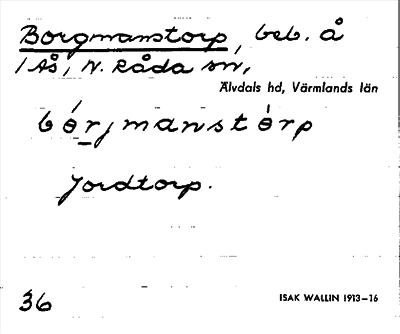 Borgmanstorp, beb. å
/ Ås, N. Råda sn,
Älvdals hd, Värmlands län
bo̱rjmanstorp
Jordtorp.
36
ISAK WALLIN 1913–16